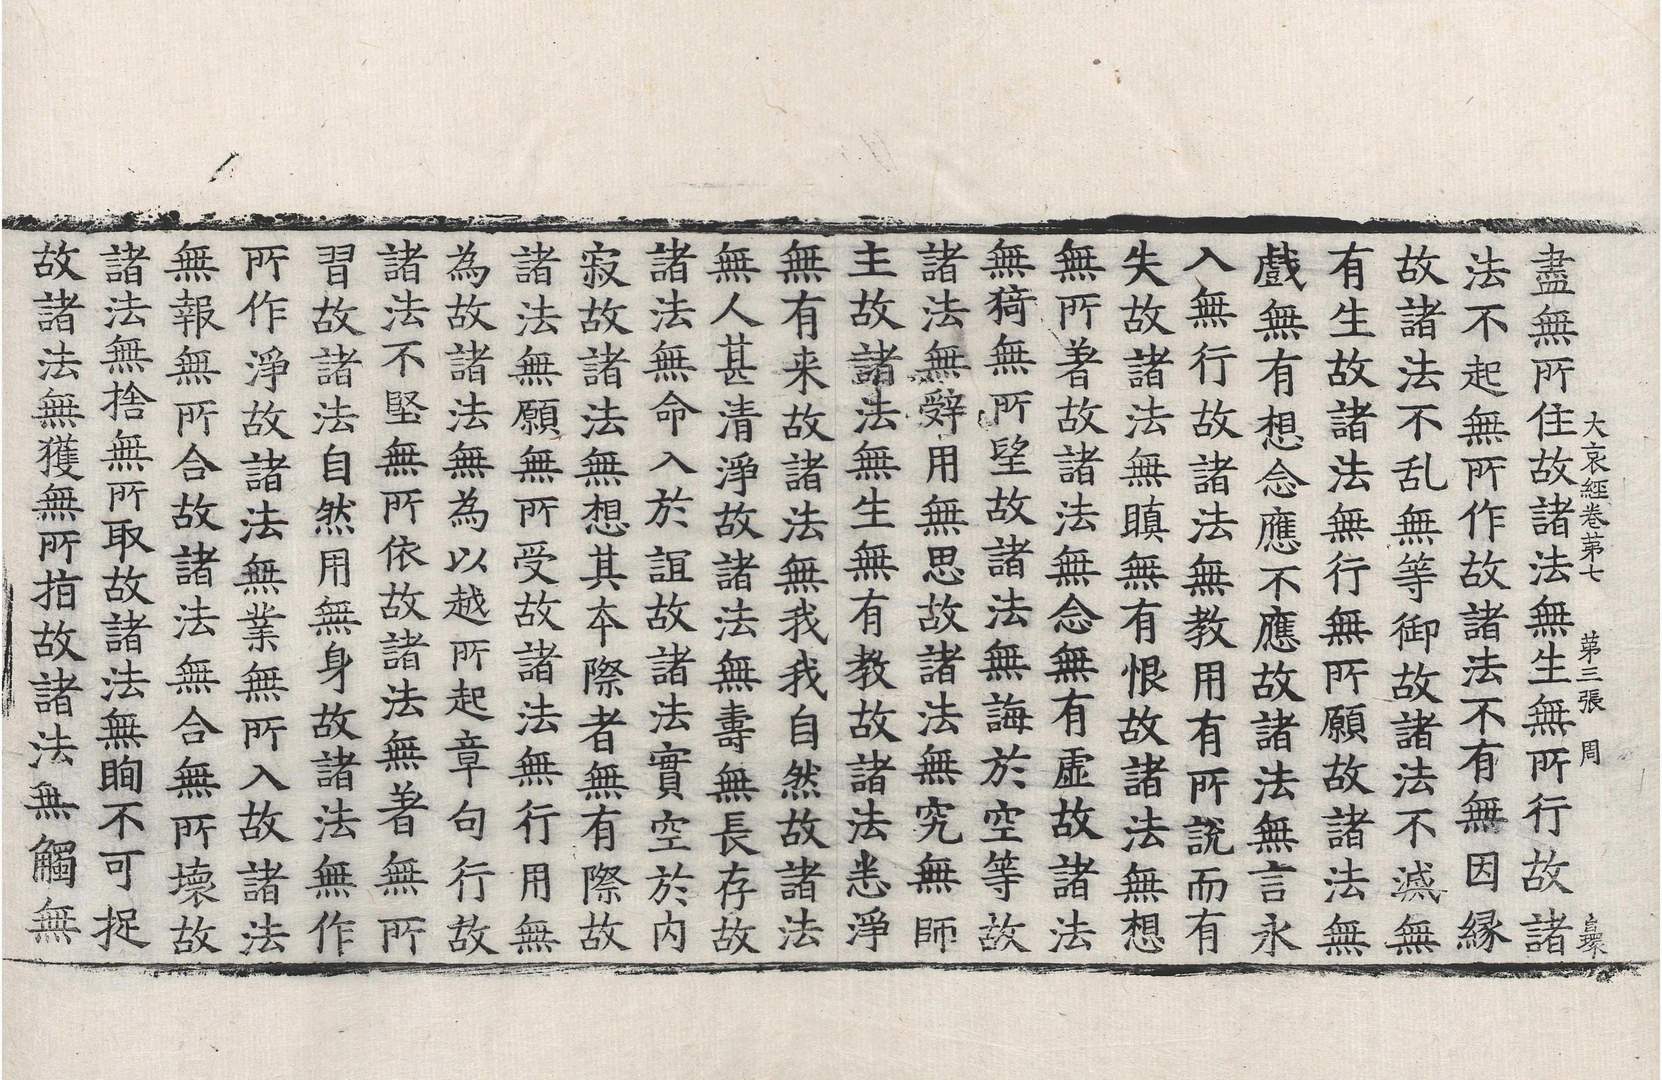 大哀經卷苐七　苐三張　周
盡無所住故諸法無生無所行故諸
法不起無所作故諸法不有無因縁
故諸法不乱無等御故諸法不滅無
有生故諸法無行無所願故諸法無
戲無有想念應不應故諸法無言永
入無行故諸法無教用有所說而有
失故諸法無瞋無有恨故諸法無想
無所著故諸法無念無有虛故諸法
無猗無所望故諸法無誨於空等故
諸法無辤用無思故諸法無究無師
主故諸法無生無有教故諸法悉淨
無有来故諸法無我我自然故諸法
無人甚清淨故諸法無壽無長存故
諸法無命入於誼故諸法實空於内
寂故諸法無想其夲際者無有際故
諸法無願無所受故諸法無行用無
為故諸法無為以越所起章句行故
諸法不堅無所依故諸法無著無所
習故諸法自然用無身故諸法無作
所作淨故諸法無業無所入故諸法
無報無所合故諸法無合無所壞故
諸法無捨無所取故諸法無眴不可捉
故諸法無獲無所指故諸法無觸無